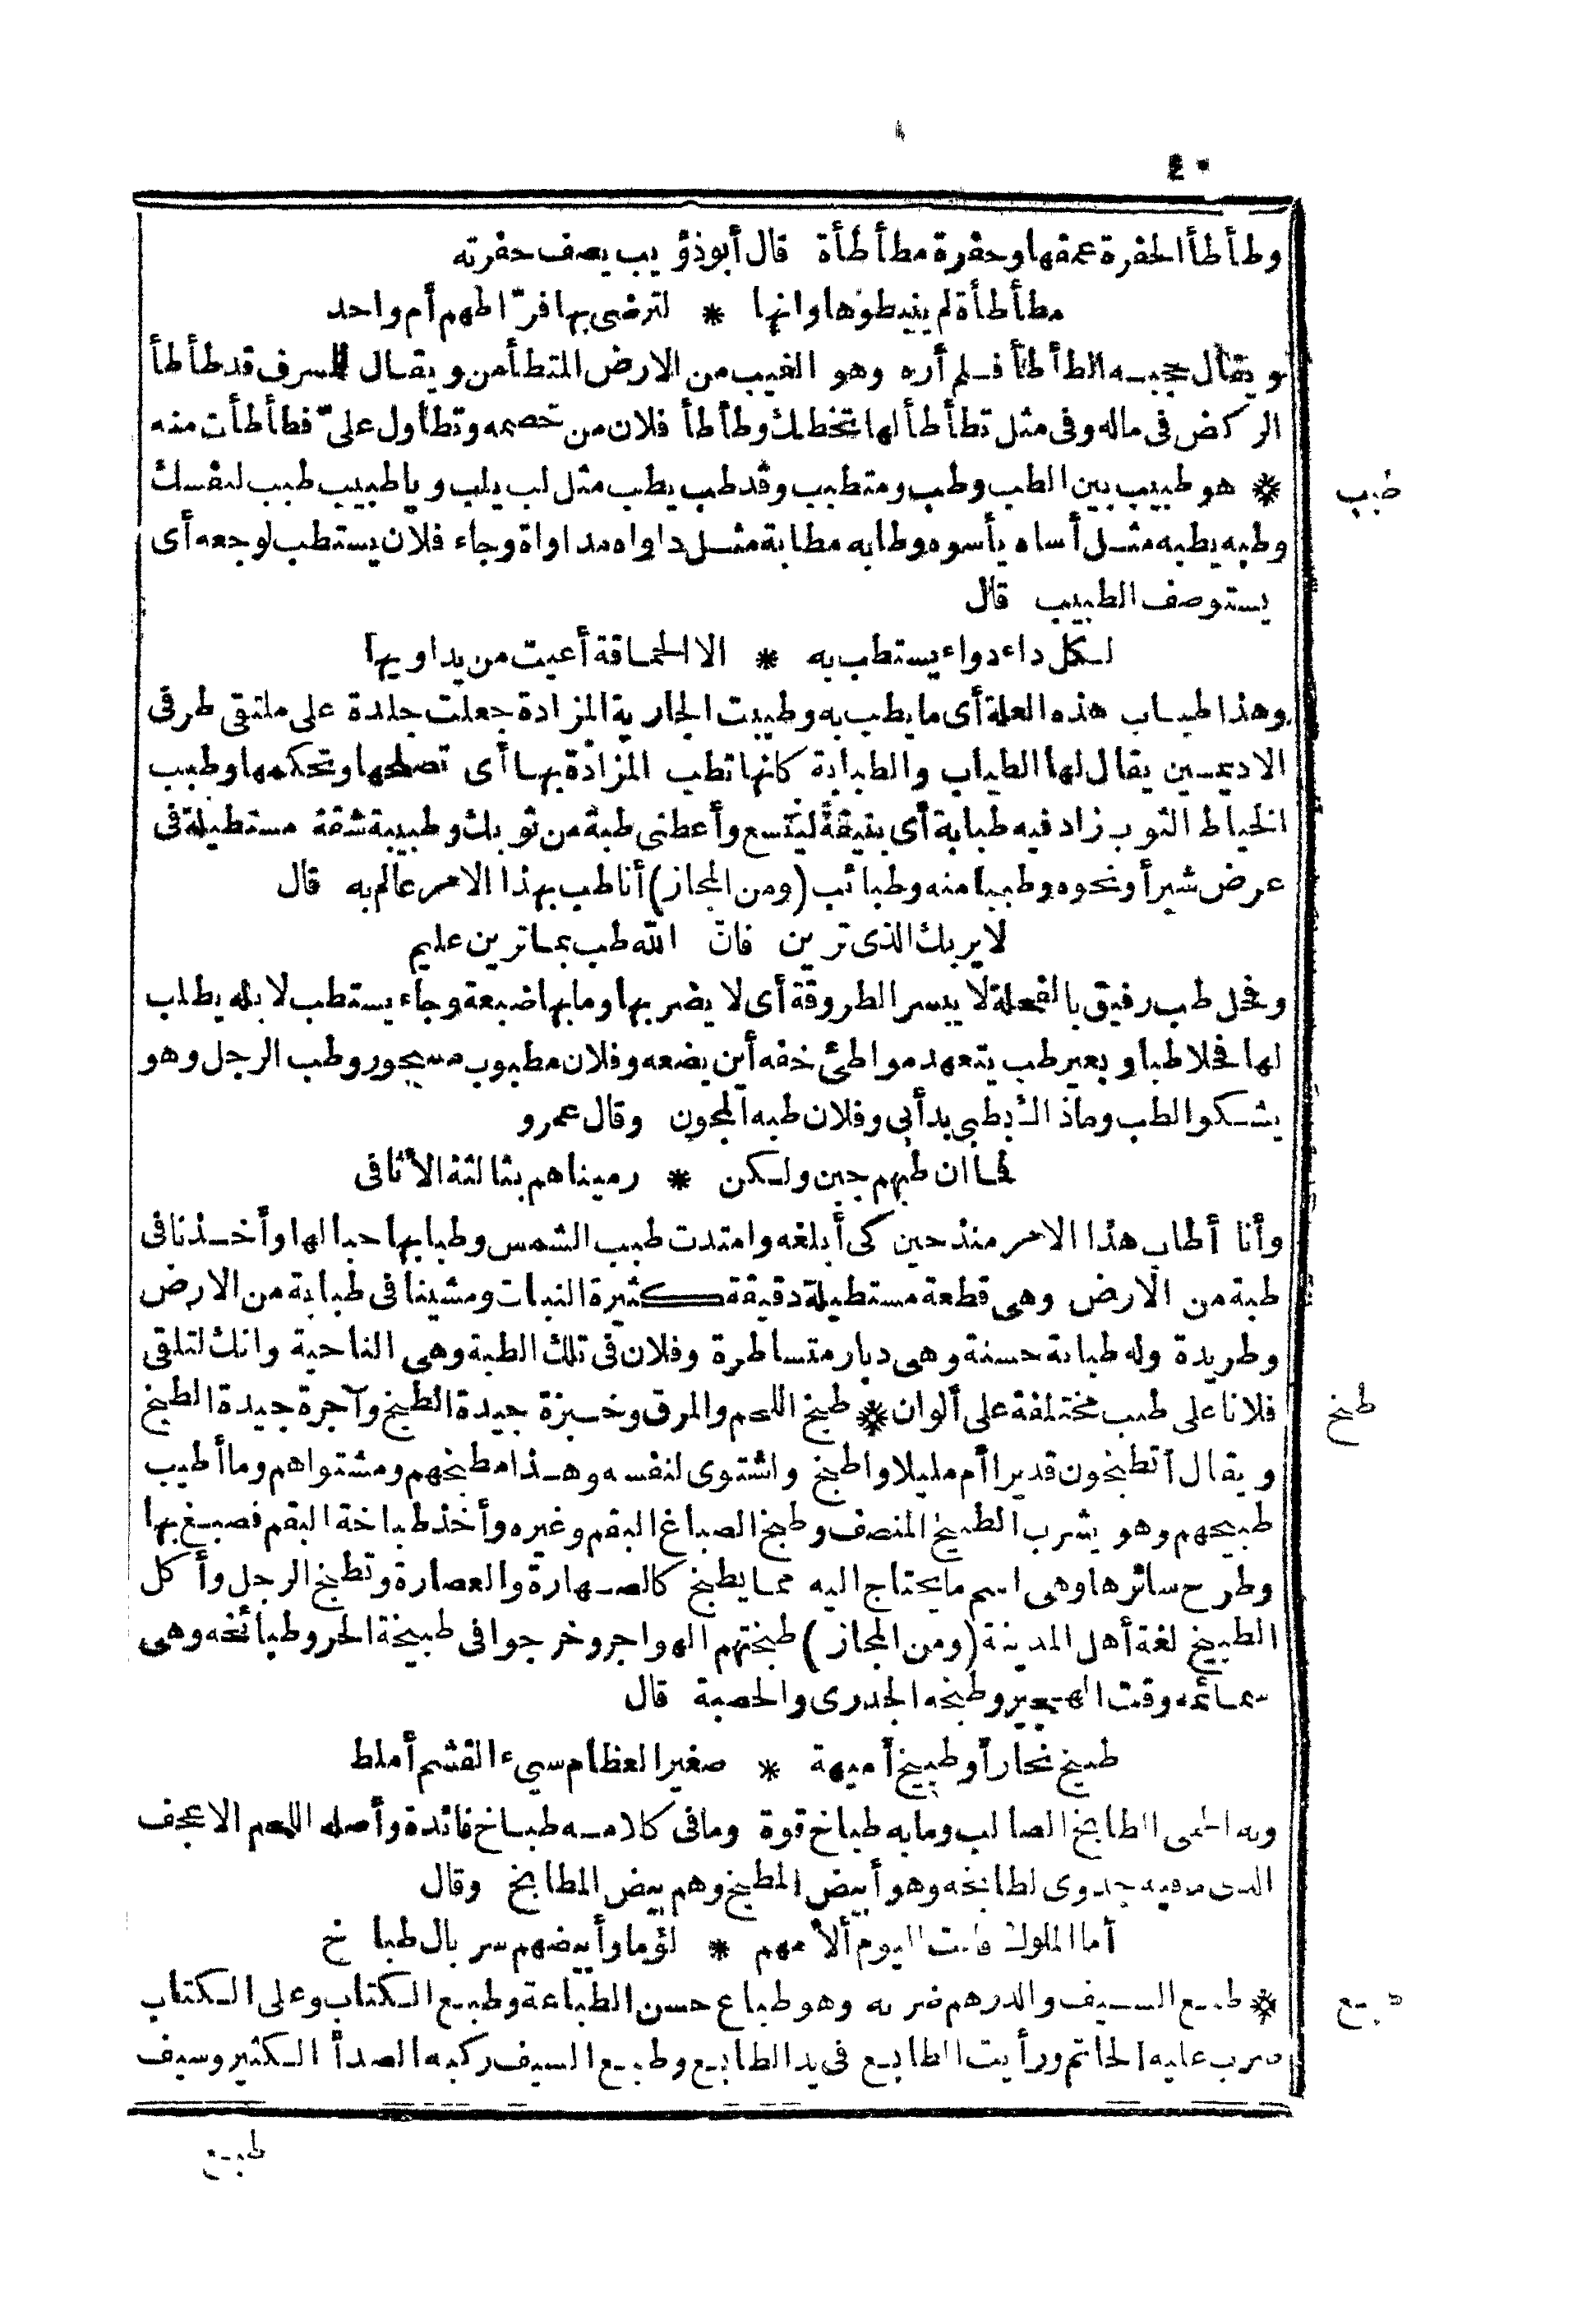 ٤٠
وطأطأ الحفرة عمقها وحفرة مطأطأة قال أبو ذؤيب يصف حفرته
مطأطأة لم ينبطوها وانها * لترضى بها فرّاطهم أم واحد
ويقال حبسه الطأطأ فلم أره وهو الغيب من الارض المتطأمن ويقال للمسرف قد طأطأ
الركض فى ماله وفى مثل تطأطأ لها تخطك وطأطأ فلان من خصمه وتطاول علىّ فطأطأت منه
طبب
* هو طبيب بين الطب وطب ومتطبب وقد طب يطب مثل لب يلب ويا طبيب طب لنفسك
وطبه يطبه مثل أساه يأسوه وطابه مطابة مثل داواه مداواة وجاء فلان يستطب لوجعه أى
يستوصف الطبيب قال
لكل داء دواء يستطب به * الا الحماقة أعيت من يداويها
وهذا طباب هذه العلة أى ما يطب به وطببت الجارية المزادة جعلت جلدة على ملتقى طرفى
الاديمين يقال لها الطباب والطبابة كانها تطب المزادة بها أى تصلحها وتحكمها وطبب
الخياط الثوب زاد فيه طبابة أى بنيقة ليتسع وأعطنى طبة من ثوبك وطبيبة شقة مستطيلة فى
عرض شبر أو نحوه وطببا منه وطبائب (ومن المجاز) أنا طب بهذا الامر عالم به قال
لا يربك الذى ترين فانّ الله طب بما ترين عليم
وفحل طب رفيق بالفحلة لا يبسر الطروقة أى لا يضر بها وما بها ضبعة وجاء يستطب لابله يطلب
لها فحلا طبا وبعير طب يتعهد مواطئ خفه أين يضعه وفلان مطبوب مسحور وطب الرجل وهو
يشكو الطب وما ذاك بطبى بدأبى وفلان طبه المجون وقال عمرو
فما ان طبهم جبن ولكن * رميناهم بثالثة الأثافى
وأنا أطاب هذا الامر منذ حين كى أبلغه وامتدت طبب الشمس وطبابها حبالها وأخذنا فى
طبة من الارض وهى قطعة مستطيلة دقيقة كثيرة النبات ومشينا فى طبابة من الارض
وطريدة وله طبابة حسنة وهى ديار متساطرة وفلان فى تلك الطبة وهى الناحية وانك لتلقى
طبخ
فلانا على طبب مختلفة على ألوان * طبخ اللحم والمرق وخبزة جيدة الطبخ وآجرة جيدة الطبخ
ويقال أتطبخون قديرا أم مليلا واطبخ واشتوى لنفسه وهذا مطبخهم ومشتواهم وما أطيب
طبيخهم وهو يشرب الطبيخ المنصف وطبخ الصباغ البقم وغيره وأخذ طباخة البقم فصبغ بها
وطرح سائرها وهى اسم ما يحتاج اليه مما يطبخ كالصهارة والعصارة وتطبخ الرجل وأكل
الطبيخ لغة أهل المدينة (ومن المجاز) طبختهم الهواجر وخرجوا فى طبيخة الحر وطبائخه وهى
سمائمه وقت الهجير وطبخه الجدرى والحصبة قال
طبيخ نحاز أو طبيخ أميهة * صغير العظام سىء القشم أملط
وبه الحمى الطابخ الصالب وما به طباخ قوة وما فى كلامه طباخ فائدة وأصله اللحم الاعجف
الذى ما فيه جدوى لطابخه وهو أبيض المطبخ وهم بيض المطابخ وقال
أما الملوك فانت اليوم ألأمهم * لؤما وأبيضهم سربال طباخ
طبع
* طبع السيف والدرهم ضربه وهو طباع حسن الطباعة وطبع الكتاب وعلى الكتاب
ضرب عليه الخاتم ورأيت الطابع فى يد الطابع وطبع السيف ركبه الصدأ الكثير وسيف
طبع